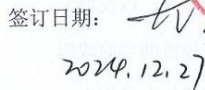 签订日期：
2024.12.27